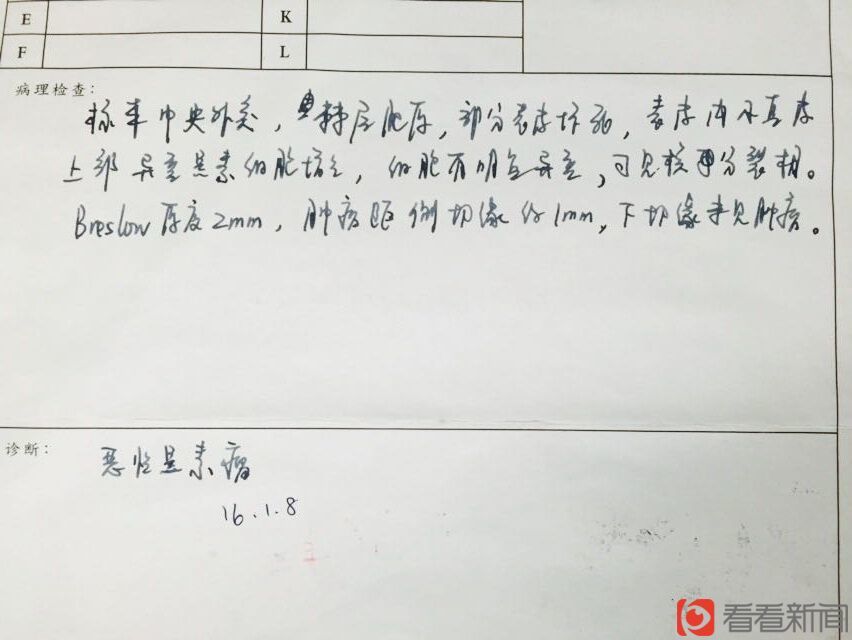 E
K
F
L
病理检查：
标本中央外突，棘层肥厚，部分表皮坏死，表皮内及真皮
上部异型黑素细胞增生，细胞有明显异型，可见核分裂相。
Breslow厚度2mm，肿瘤距侧切缘约1mm，下切缘未见肿瘤。
诊断：
恶性黑素瘤
16.1.8
看看新闻